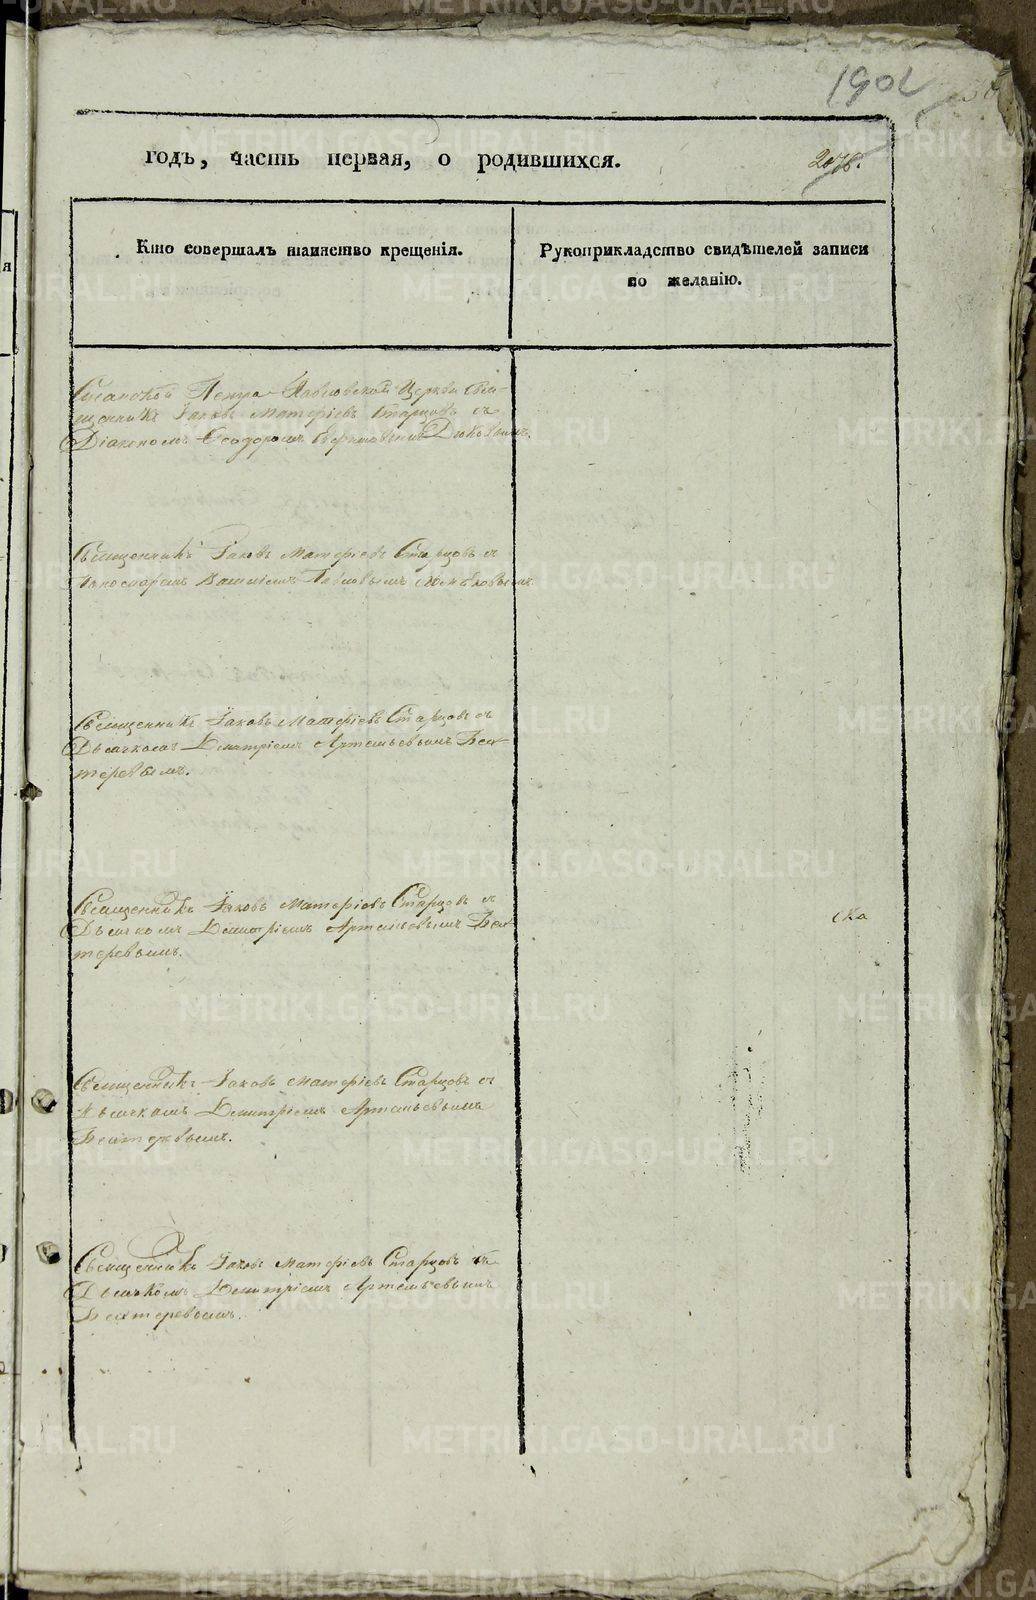 1902
годъ, часть первая, о родившихся.
Кто совершалъ таинство крещенія.
Рукоприкладство свидѣтелей записи
по желанію.
Петро-Павловской Церкви Свя-
щенникъ Іаковъ Матфіевъ Старцовъ съ
Діакономъ Ѳеодоромъ
Священникъ Іаковъ Матфіевъ Старцовъ съ
Священникъ Іаковъ Матфіевъ Старцовъ съ
Дьячкомъ Димитріемъ Артемьевымъ Бех-
теревымъ.
Священникъ Іаковъ Матфіевъ Старцовъ съ
Дьячкомъ Димитріемъ Артемьевымъ Бех-
теревымъ.
Священникъ Іаковъ Матфіевъ Старцовъ съ
Дьячкомъ Димитріемъ Артемьевымъ
Бехтеревымъ.
Священникъ Іаковъ Матфіевъ Старцовъ съ
Дьячкомъ Димитріемъ Артемьевымъ
Бехтеревымъ.
METRIKI.GASO-URAL.RU